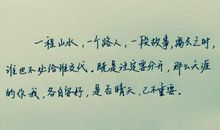 一程山水，一个路人，一段故事，离去之时，
谁也不必给谁交代。既是注定要分开，那么天涯
的你我，各自安好，是否晴天，已不重要。